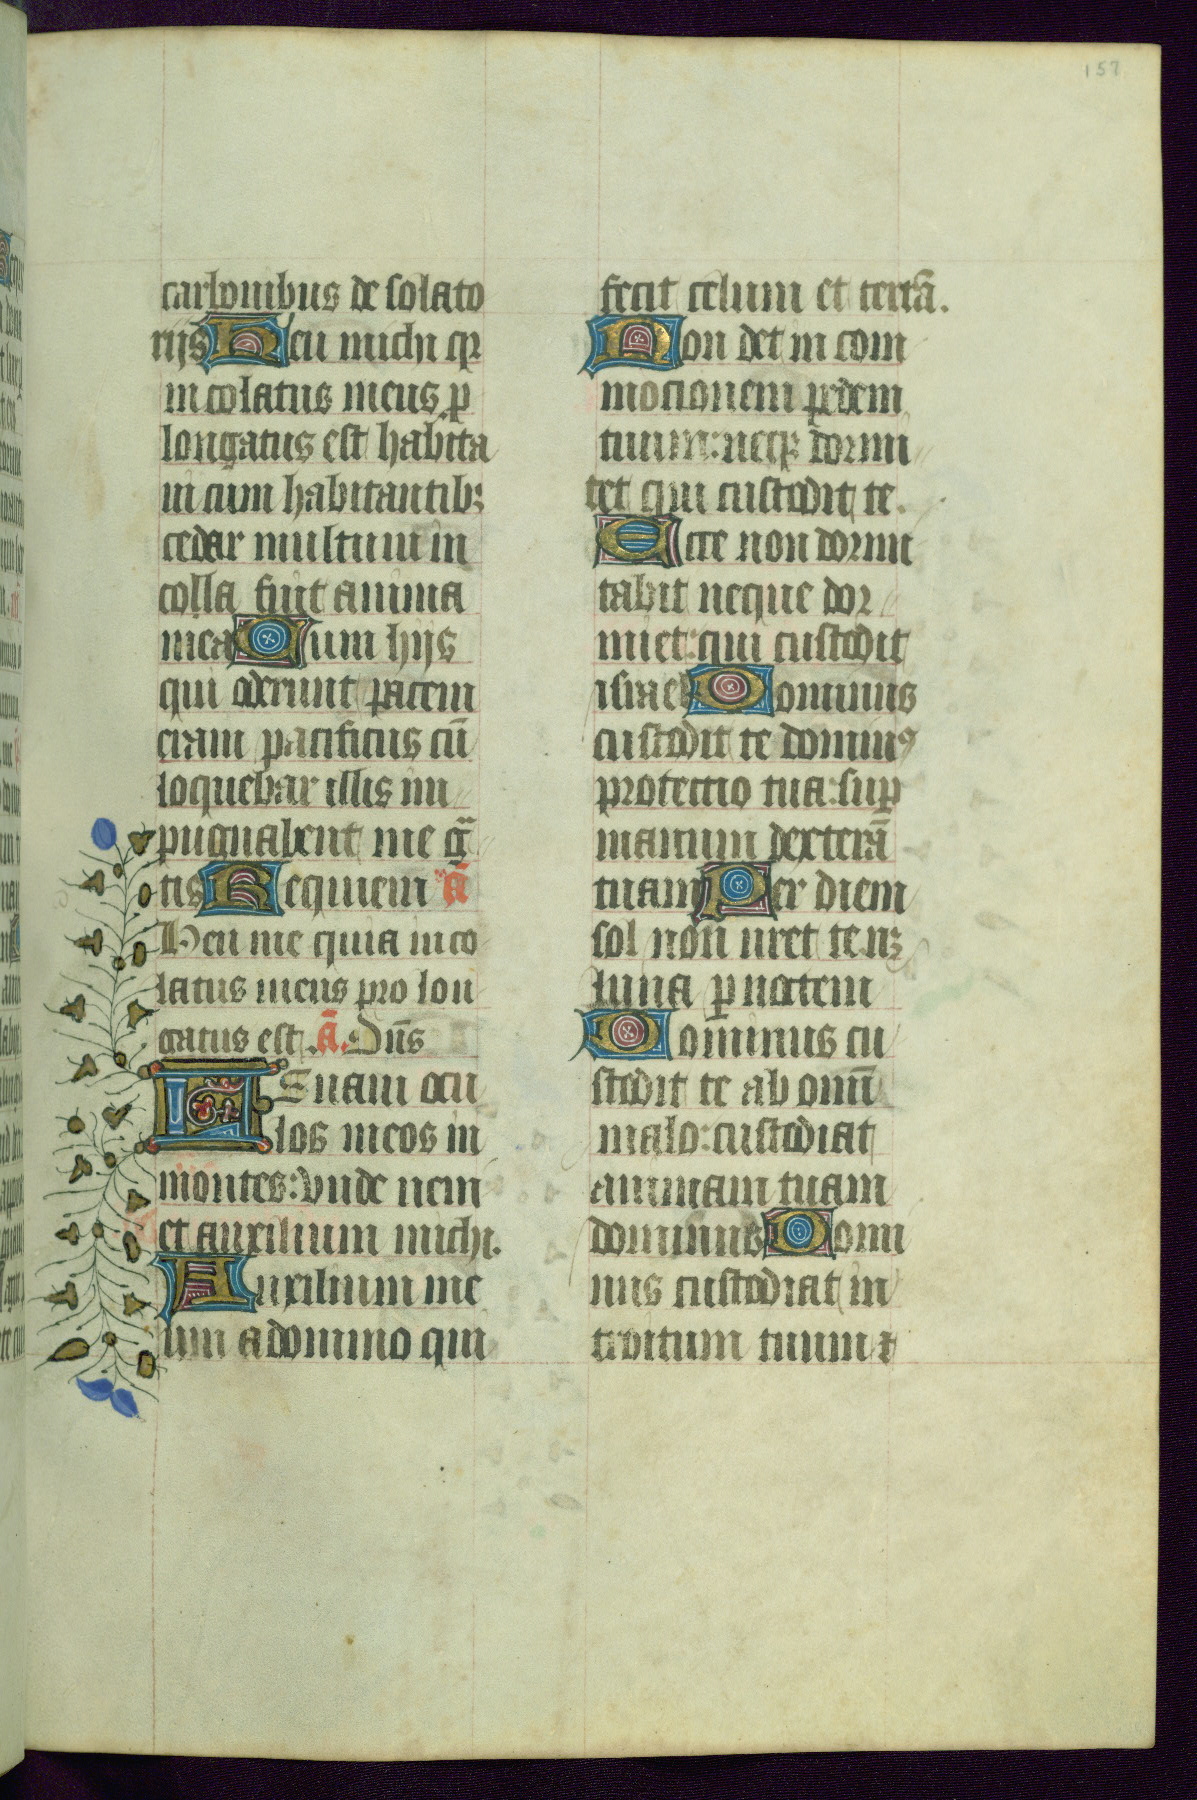 157
carbonibus de solato
rijs Heu michi qr
incolatus meus p
longatus est habita
ui cum habitantib;
cedar multum in
colla fuit anima
mea Cum hijs
qui oderunt pacem
eram pacificus cū
loquebar illis im
pugnabent me g̃
tis Requiem ā
Heu me quia inco
latus meus pro lon
gatus est. ā. Dn̄s
LEuaui ocu
los meos in
montes: vnde uem
et auxilium michi.
Auxilium me
um a domino qui
fecit celum et terrā.
Non det in com
mocionem pedem
tuum: neq; dormi
tet qui custodit te.
Ecce non dormi
tabit neque dor
miet: qui custodit
israel Dominus
custodit te dominꝰ
protectio tua: sup
manum dexterā
tuam Per diem
sol non uret te nz
luna p noctem
Dominus cu
stodit te ab omī
malo: custodiat
animam tuam
dominus Domi
nus custodiat in
troitum tuum ⁊